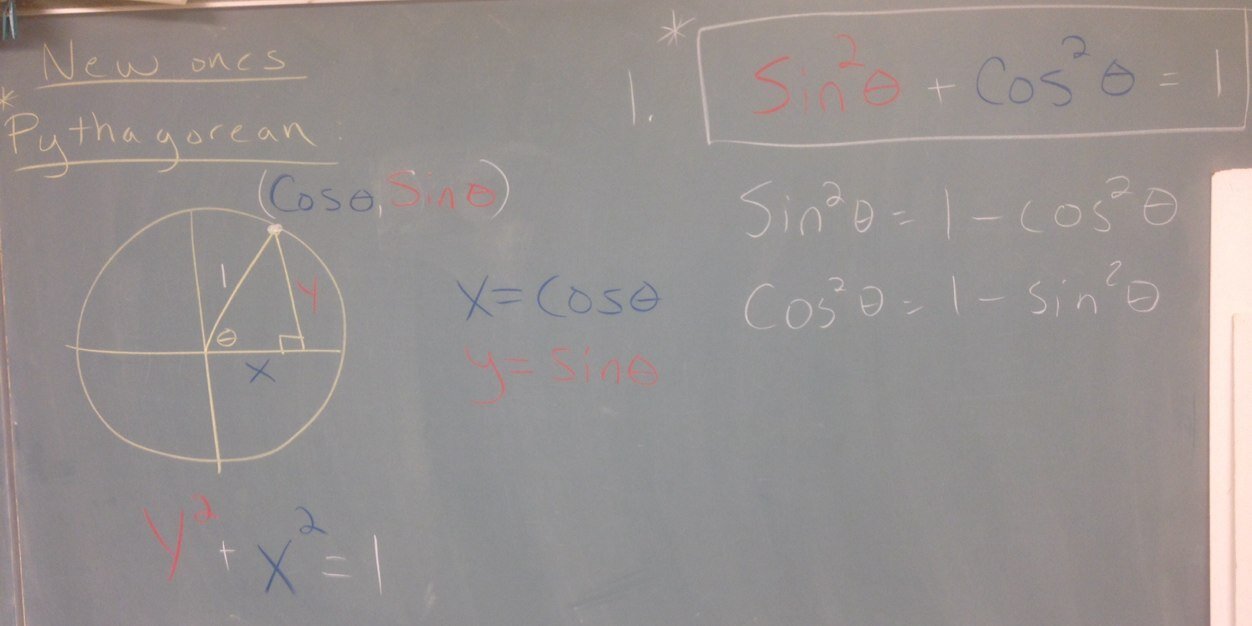 New ones
*
Pythagorean
(Cosθ, Sinθ)
1
y
θ
x
y² + x² = 1
x = Cosθ
y = sinθ
*
1. Sin²θ + Cos²θ = 1
Sin²θ = 1 - cos²θ
Cos²θ = 1 - sin²θ